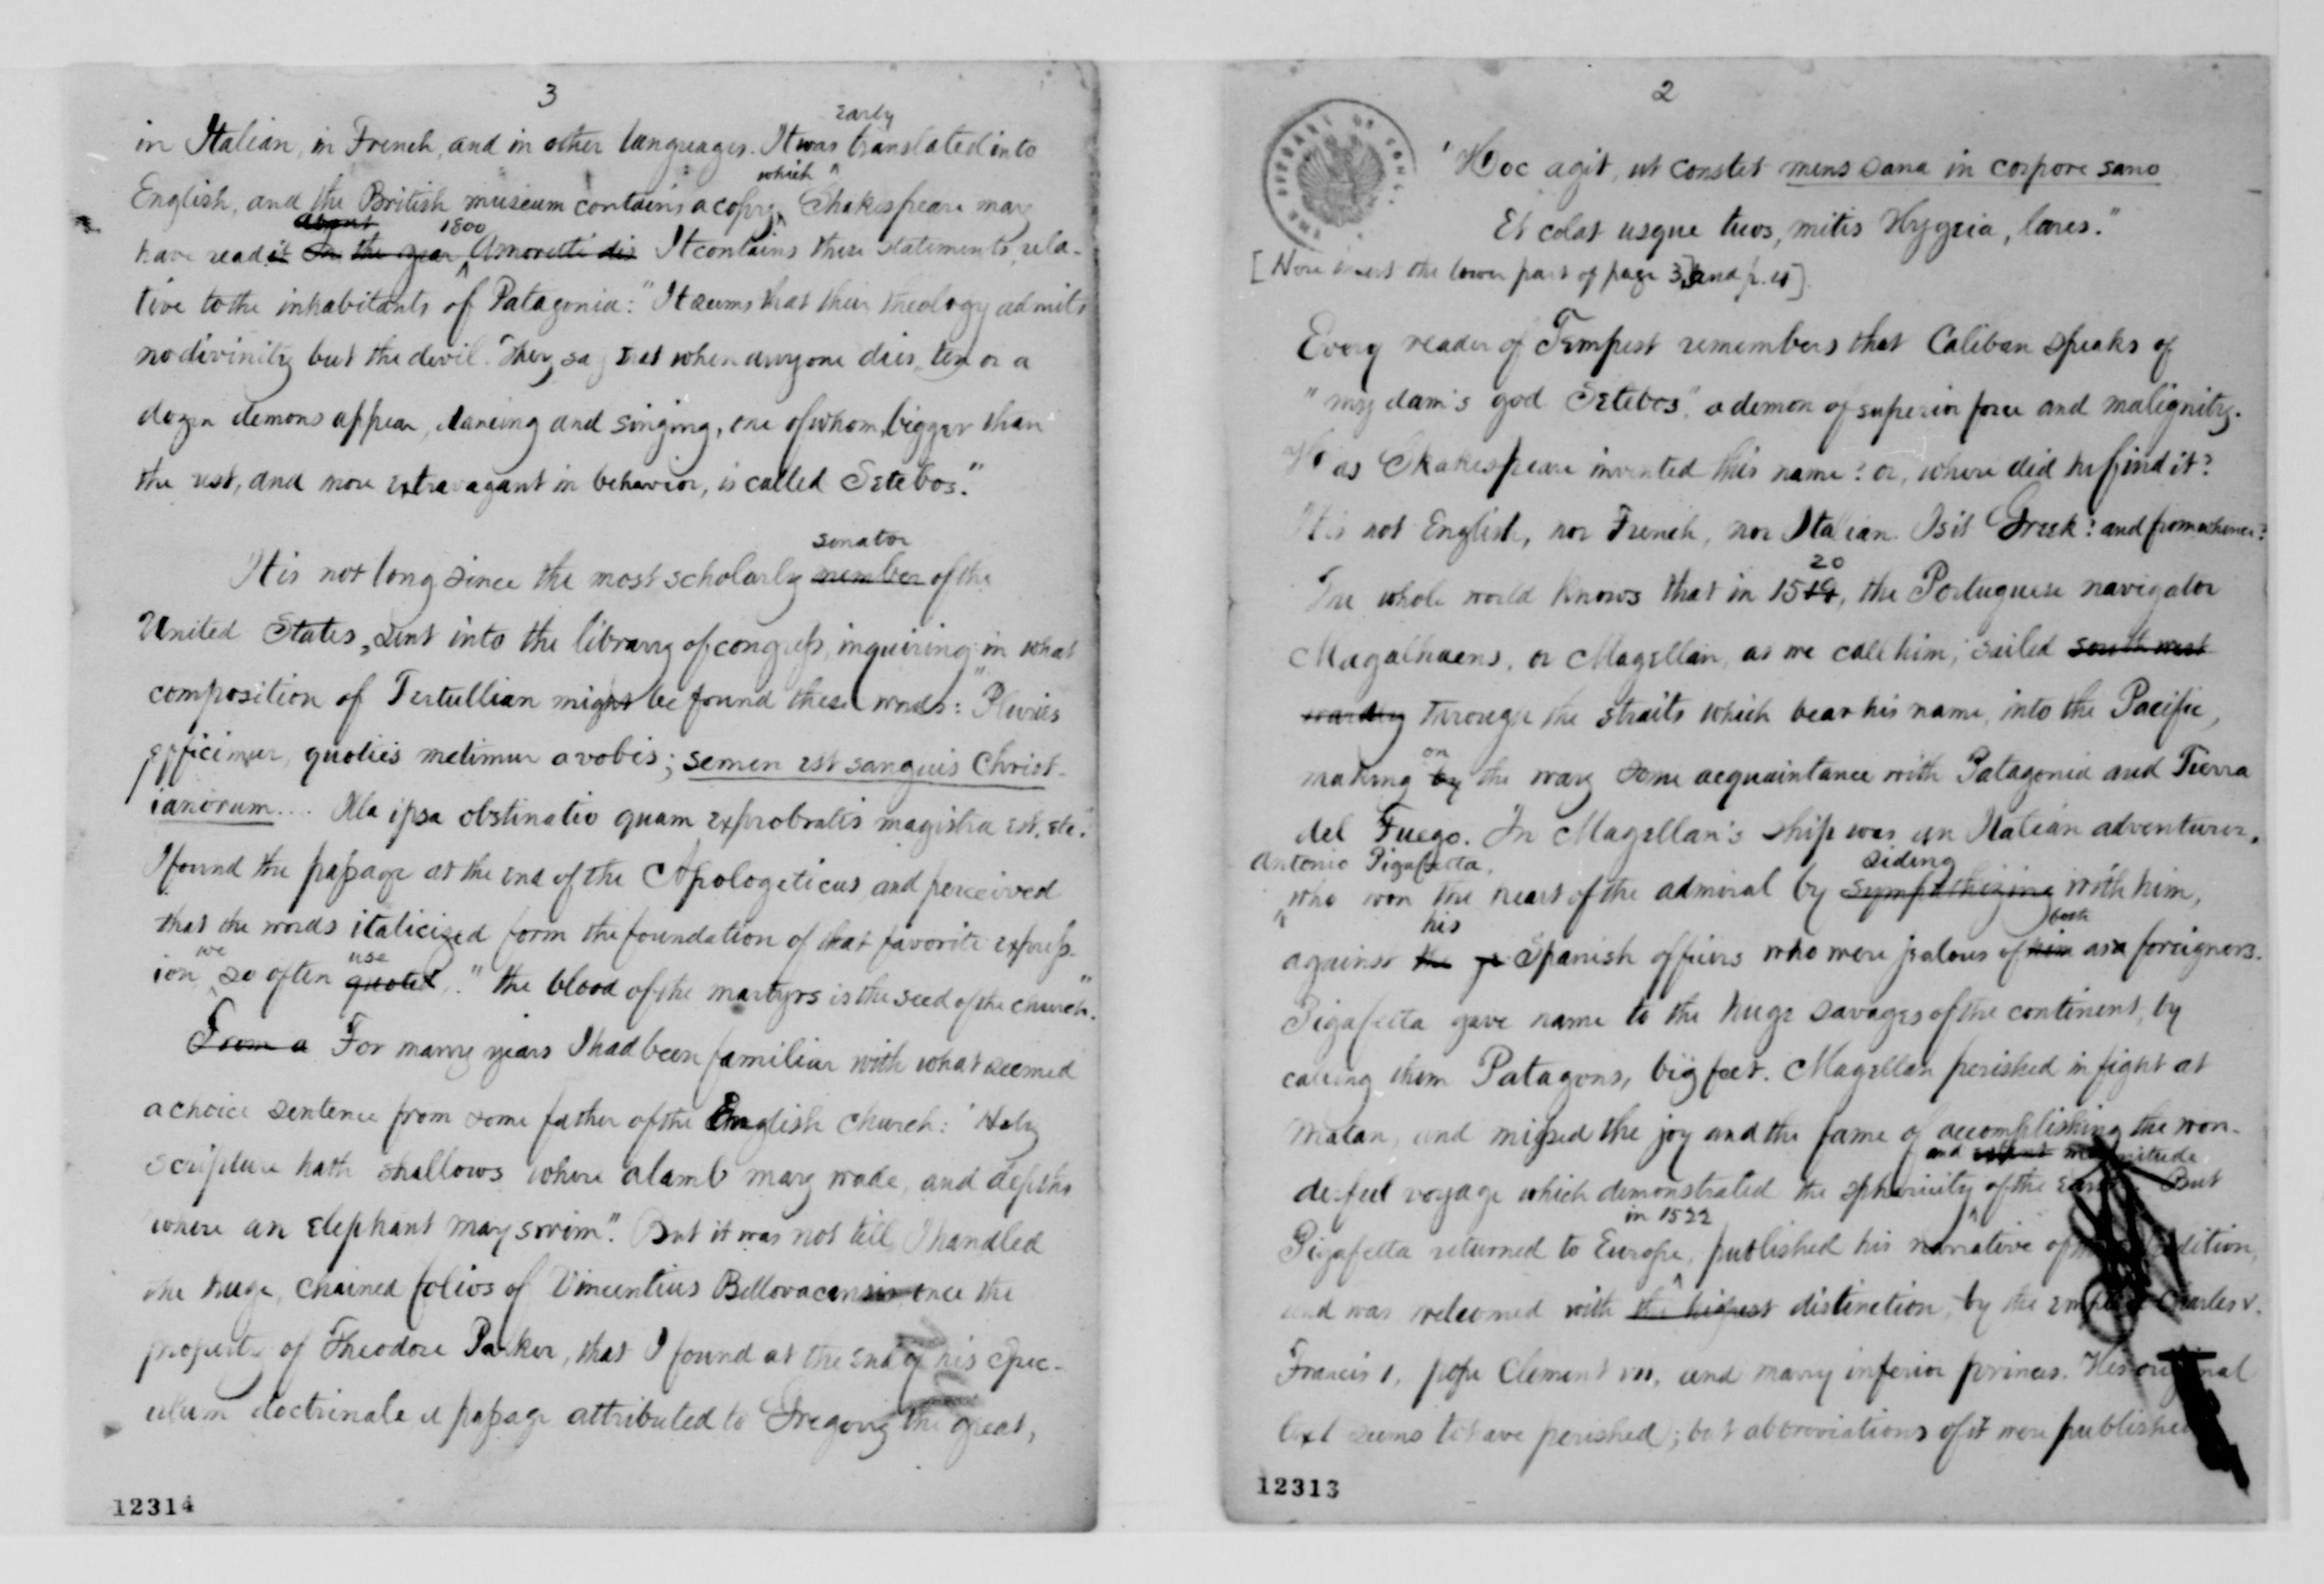 3
in Italian, in French, and in other languages. It was early translated into
English, and the British museum contains a copy, which Shakespeare may
have read it about In the year 1800 Amoretti dis It contains these statements, rela-
tive to the inhabitants of Patagonia: "It seems that their theology admits
no divinity but the devil. They say that when anyone dies, ten or a
dozen demons appear, dancing and singing, one of whom, bigger than
the rest, and more extravagant in behavior, is called Setebos."
It is not long since the most scholarly member senator of the
United States, sent into the library of congress, inquiring in what
composition of Tertullian might be found these words: "Plures
efficimur, quoties metimur a vobis; semen est sanguis Christ-
ianorum.... Illa ipsa obstinatio quam exprobratis magistra est, etc."
I found the passage at the end of the Apologeticus, and perceived
that the words italicized form the foundation of that favorite express-
ion, we so often quoted use, "the blood of the martyrs is the seed of the church."
From a For many years I had been familiar with what seemed
a choice sentence from some father of the English church: "Holy
scripture hath shallows where a lamb may wade, and depths
where an elephant may swim". But it was not till I handled
the huge, chained folios of Vincentius Bellovacensis once the
property of Theodore Parker, that I found at the end of his Spec-
ulum doctrinale a passage attributed to Gregory the great,
12314
2
THE LIBRARY OF CONGRESS
"Hoc agit, ut constet mens sana in corpore sano
Et colat usque tuos, mitis Hygeia, lares."
[Here insert the lower part of page 3, and p. 4]
Every reader of Tempest remembers that Caliban speaks of
"my dam's god Setebos", a demon of superior force and malignity.
Has Shakespeare invented this name? or, where did he find it?
It is not English, nor French, nor Italian. Is it Greek? and from whence?
The whole world knows that in 1519 20, the Portuguese navigator
Magalhaens, or Magellan, as we call him, sailed southwest
wardly through the straits which bear his name, into the Pacific,
making by on the way some acquaintance with Patagonia and Tierra
del Fuego. In Magellan's ship was an Italian adventurer,
Antonio Pigafetta,
who won the heart of the admiral by sympathizing siding with him,
against the his Spanish officers who were jealous of him both as a foreigners.
Pigafetta gave name to the huge savages of the continent, by
calling them Patagons, big feet. Magellan perished in fight at
Matan, and missed the joy and the fame of accomplishing the won-
derful voyage which demonstrated the sphericity and extent magnitude of the earth. But
Pigafetta returned to Europe, in 1522 published his narrative of the expedition,
and was welcomed with the highest distinction, by the emperor Charles V.
Francis 1, pope Clement VII, and many inferior princes. His original
text seems to have perished; but abbreviations of it were published
12313